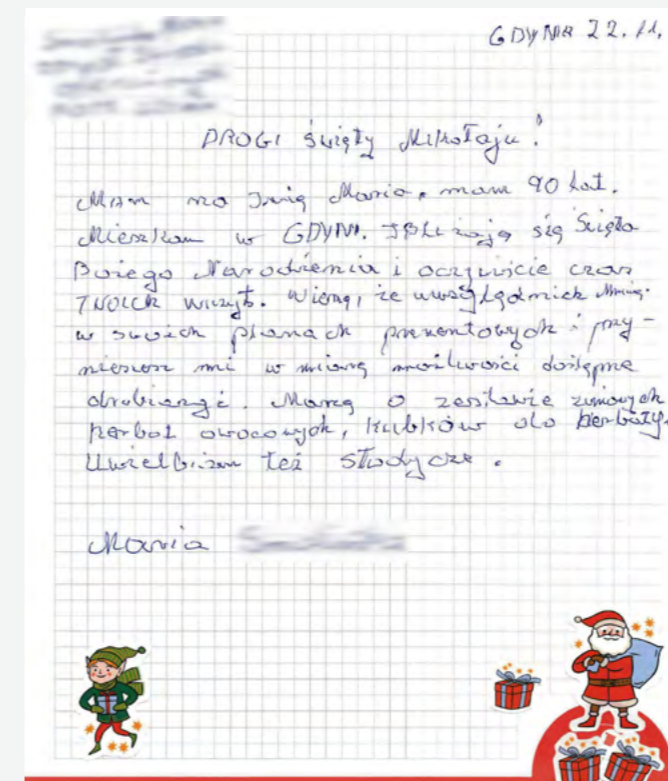 GDYNIA 22.11.
DROGI Święty Mikołaju!
Mam na Imię Maria, mam 90 lat.
Mieszkam w GDYNI. Zbliżają się Święta
Bożego Narodzenia i oczywiście czas
TWOICH wizyt. Wierzę, że uwzględnisz Mnie
w swoich planach prezentowych i przy-
niesiesz mi w miarę możliwości dostępne
drobiazgi. Marzę o zestawie zimowych
herbat owocowych, kubków do herbaty.
Uwielbiam też słodycze.
Maria